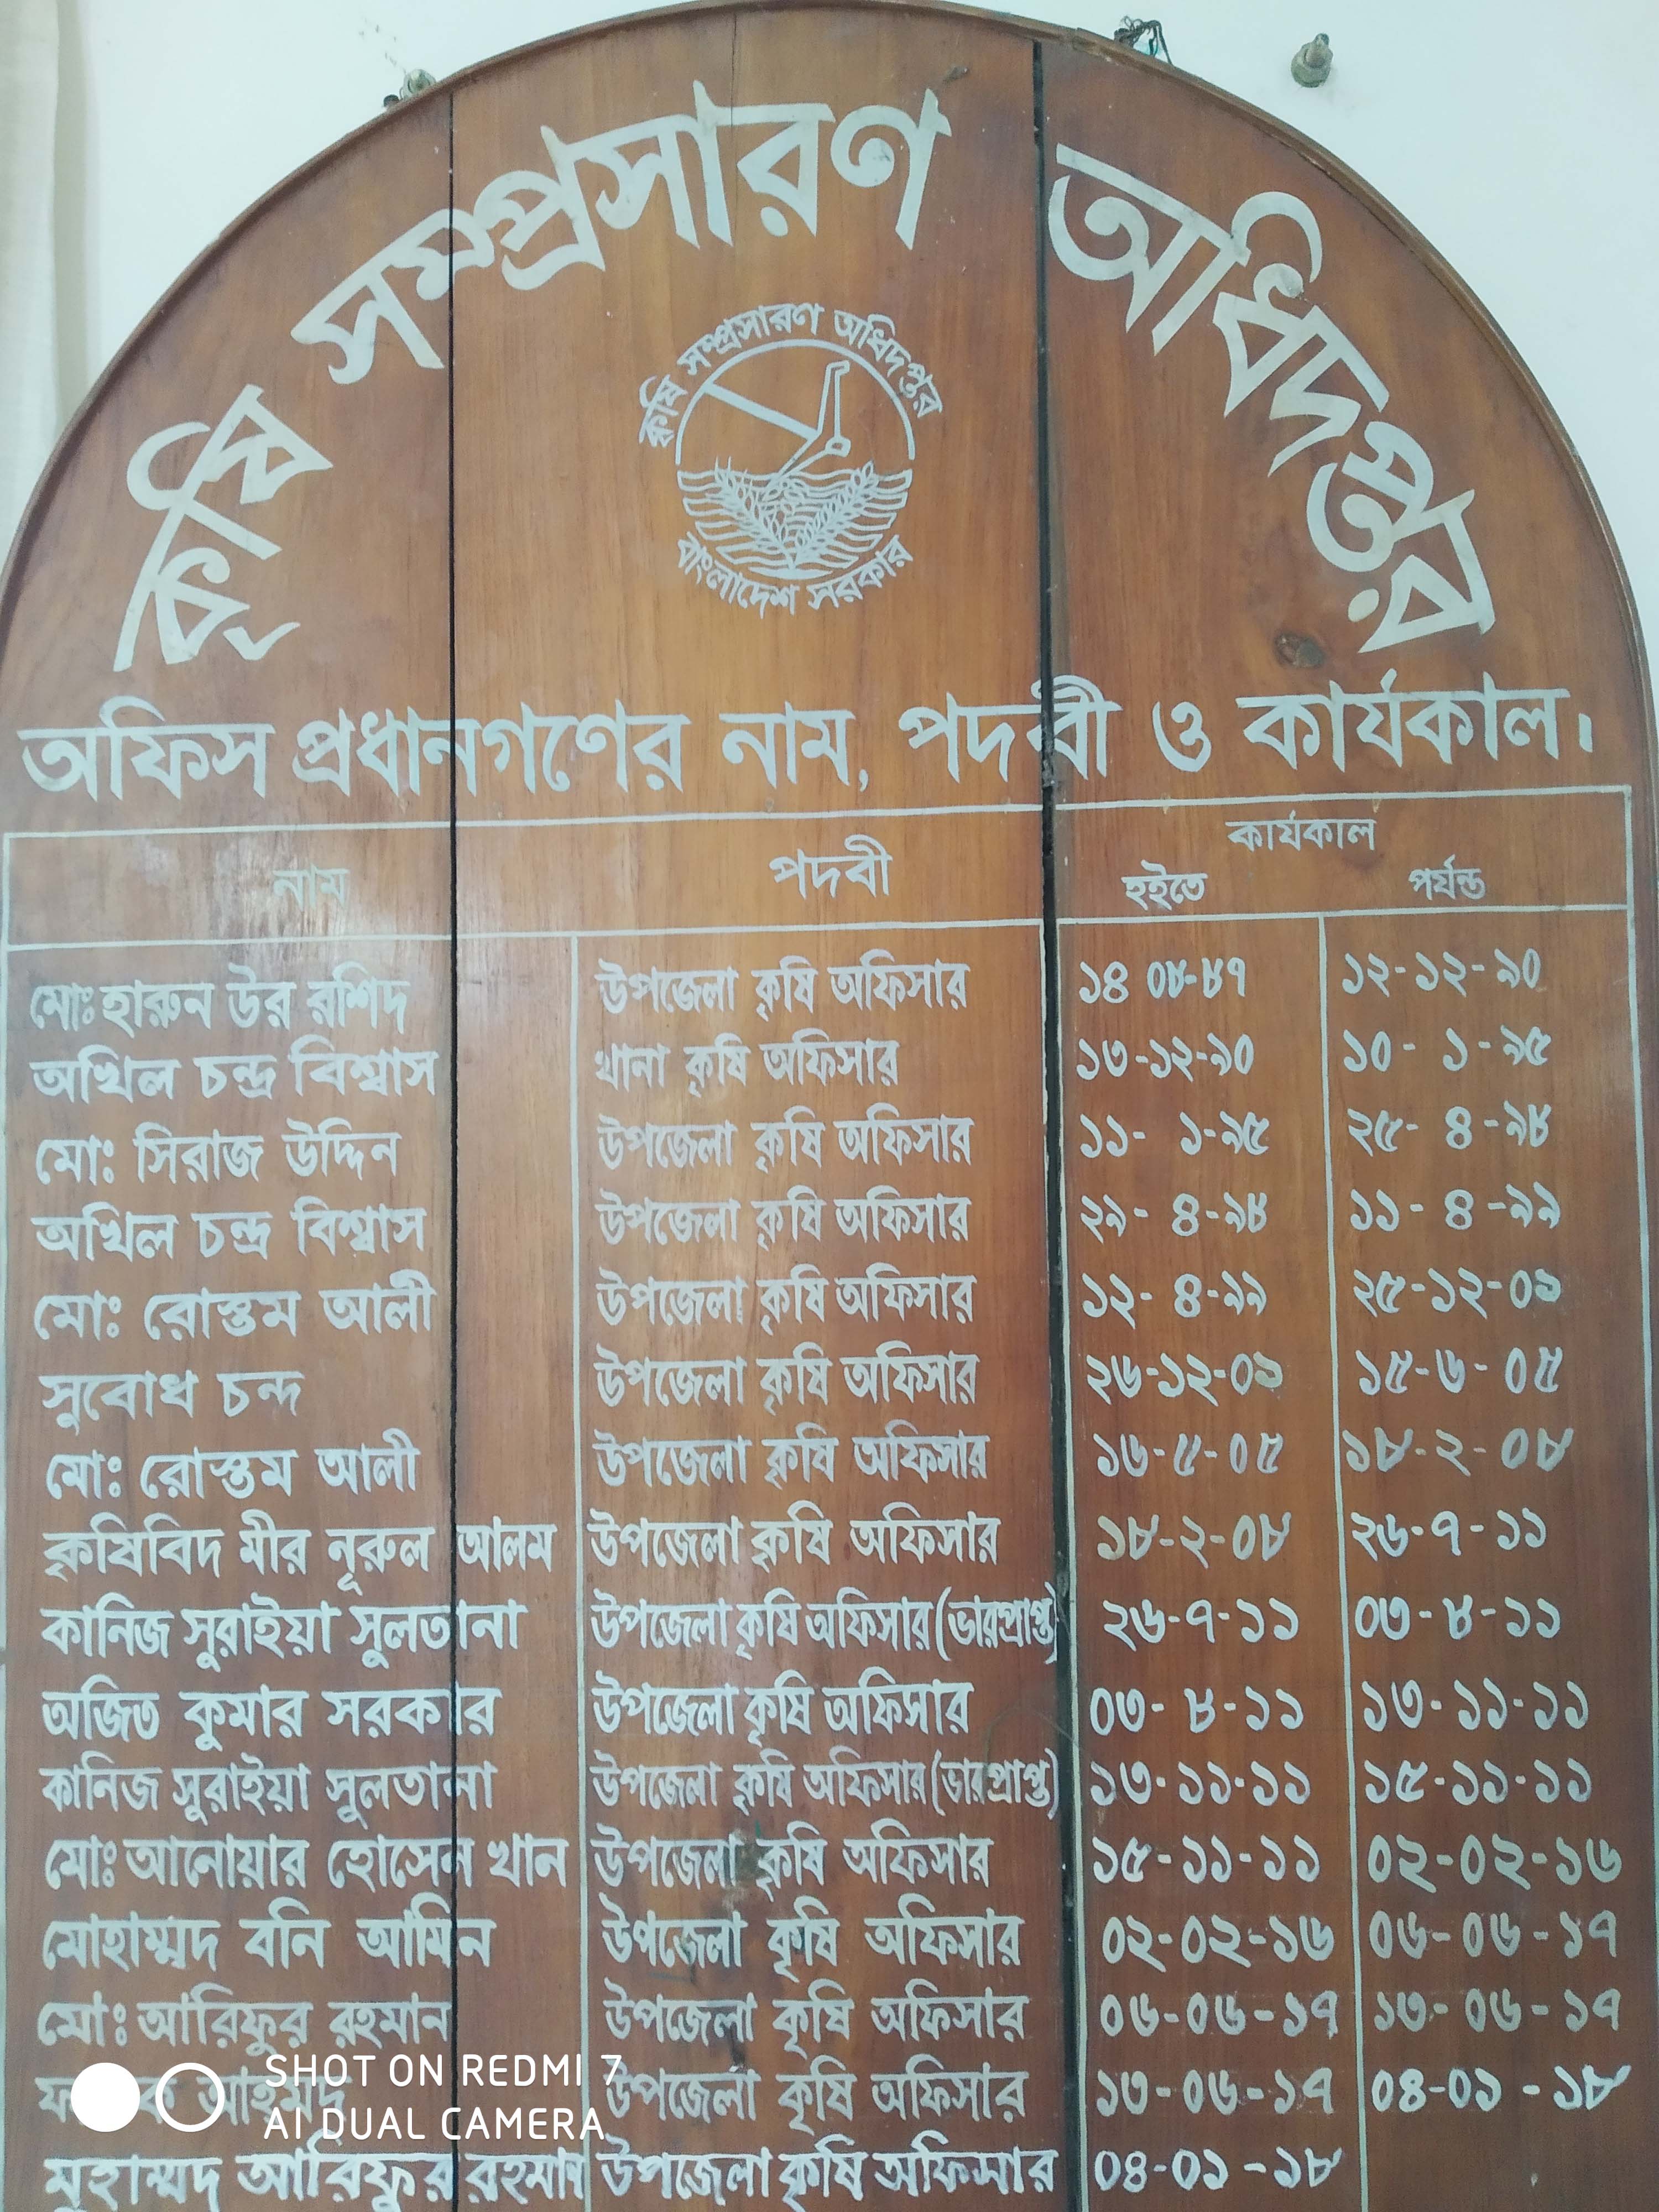 কৃষি সম্প্রসারণ অধিদপ্তর
কৃষি সম্প্রসারণ অধিদপ্তর
বাংলাদেশ সরকার
অফিস প্রধানগণের নাম, পদবী ও কার্যকাল।
নাম পদবী কার্যকাল
হইতে পর্যন্ত
মোঃ হারুন উর রশিদ উপজেলা কৃষি অফিসার ১৪ ০৮-৮৭ ১২-১২-৯০
অখিল চন্দ্র বিশ্বাস থানা কৃষি অফিসার ১৩-১২-৯০ ১০- ১-৯৫
মোঃ সিরাজ উদ্দিন উপজেলা কৃষি অফিসার ১১- ১-৯৫ ২৫- ৪-৯৮
অখিল চন্দ্র বিশ্বাস উপজেলা কৃষি অফিসার ২৯- ৪-৯৮ ১১- ৪-৯৯
মোঃ রোস্তম আলী উপজেলা কৃষি অফিসার ১২- ৪-৯৯ ২৫-১২-০১
সুবোধ চন্দ উপজেলা কৃষি অফিসার ২৬-১২-০১ ১৫-৬-০৫
মোঃ রোস্তম আলী উপজেলা কৃষি অফিসার ১৬-৫-০৫ ১৮-২-০৮
কৃষিবিদ মীর নূরুল আলম উপজেলা কৃষি অফিসার ১৮-২-০৮ ২৬-৭-১১
কানিজ সুরাইয়া সুলতানা উপজেলা কৃষি অফিসার (ভারপ্রাপ্ত) ২৬-৭-১১ ০৩-৮-১১
অজিত কুমার সরকার উপজেলা কৃষি অফিসার ০৩-৮-১১ ১৩-১১-১১
কানিজ সুরাইয়া সুলতানা উপজেলা কৃষি অফিসার (ভারপ্রাপ্ত) ১৩-১১-১১ ১৫-১১-১১
মোঃ আনোয়ার হোসেন খান উপজেলা কৃষি অফিসার ১৫-১১-১১ ০২-০২-১৬
মোহাম্মদ বনি আমিন উপজেলা কৃষি অফিসার ০২-০২-১৬ ০৬-০৬-১৭
মোঃ আরিফুর রহমান উপজেলা কৃষি অফিসার ০৬-০৬-১৭ ১৩-০৬-১৭
আহমদ উপজেলা কৃষি অফিসার ১৩-০৬-১৭ ০৪-০১-১৮
মুহাম্মদ আরিফুর রহমান উপজেলা কৃষি অফিসার ০৪-০১-১৮
SHOT ON REDMI 7
AI DUAL CAMERA